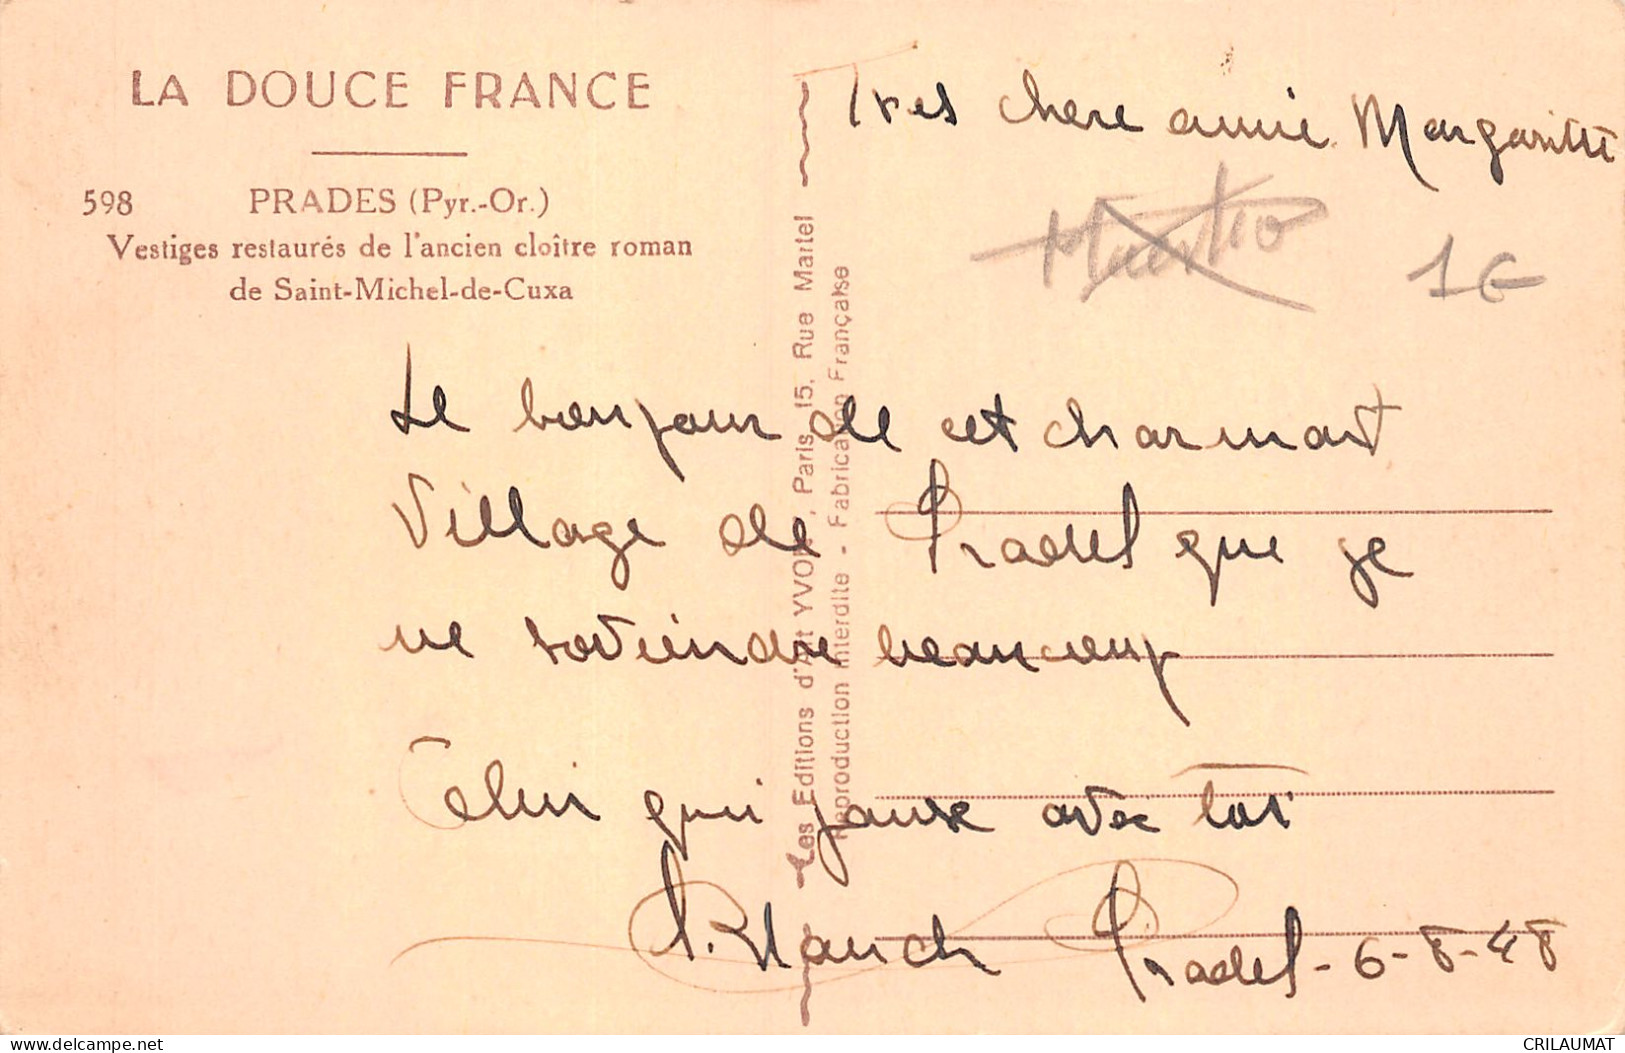 LA DOUCE FRANCE
598 PRADES (Pyr.-Or.)
Vestiges restaurés de l'ancien cloître roman
de Saint-Michel-de-Cuxa
Les Editions d'Art YVON, Paris, 15, Rue Martel
Reproduction Interdite - Fabrication Française
Tres chere amie Margaritte
1€
Le bonjour de cet charmant
Village de Prades que je
me soviendre beaucoup
Celui qui panse avec toi
Prades - 6-8-48
delcampe.net
CRILAUMAT